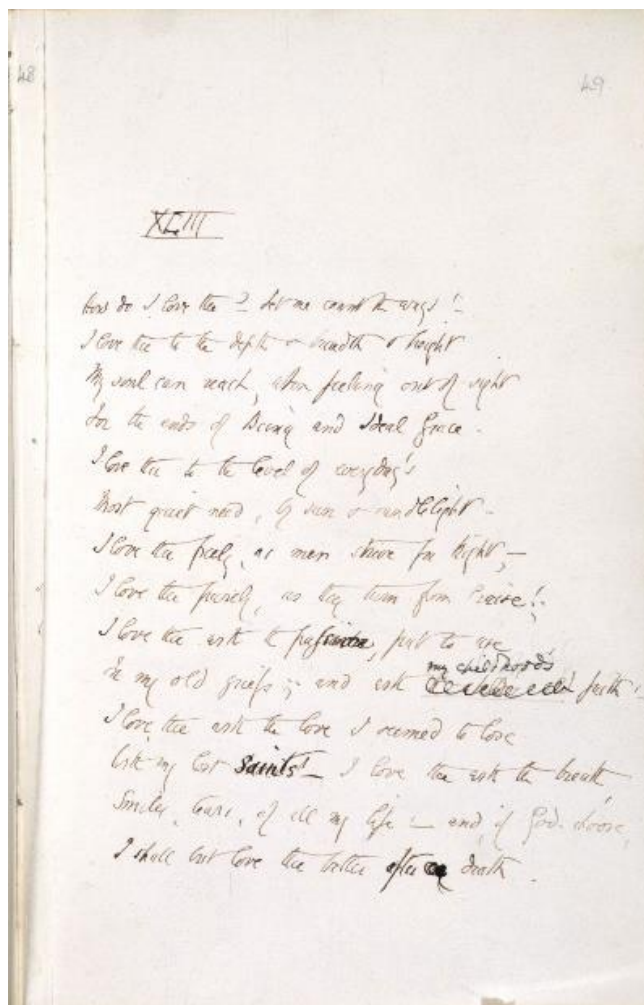 48
49
XLIII
How do I love thee? Let me count the ways!—
I love thee to the depth & breadth & height
My soul can reach, when feeling out of sight
For the ends of Being and Ideal Grace.
I love thee to the level of everyday's
Most quiet need, by sun & candlelight—
I love thee freely, as men strive for Right,—
I love thee purely, as they turn from Praise!;
I love thee with the passion, put to use
my childhood's
In my old griefs,; and with faith:
I love thee with the love I seemed to lose
With my lost Saints!— I love thee with the breath
Smiles, tears, of all my life!— and, if God choose,
I shall but love thee better after death.